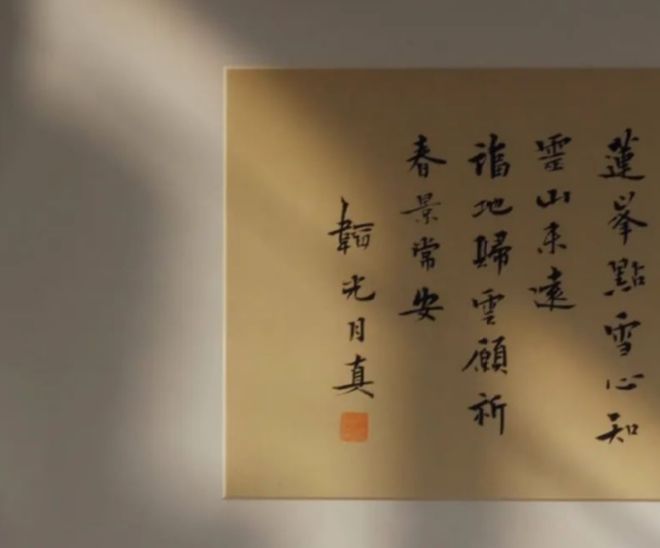 蓮峯點雪心知
靈山未遠
福地歸雲願祈
春景常安
韜光月真